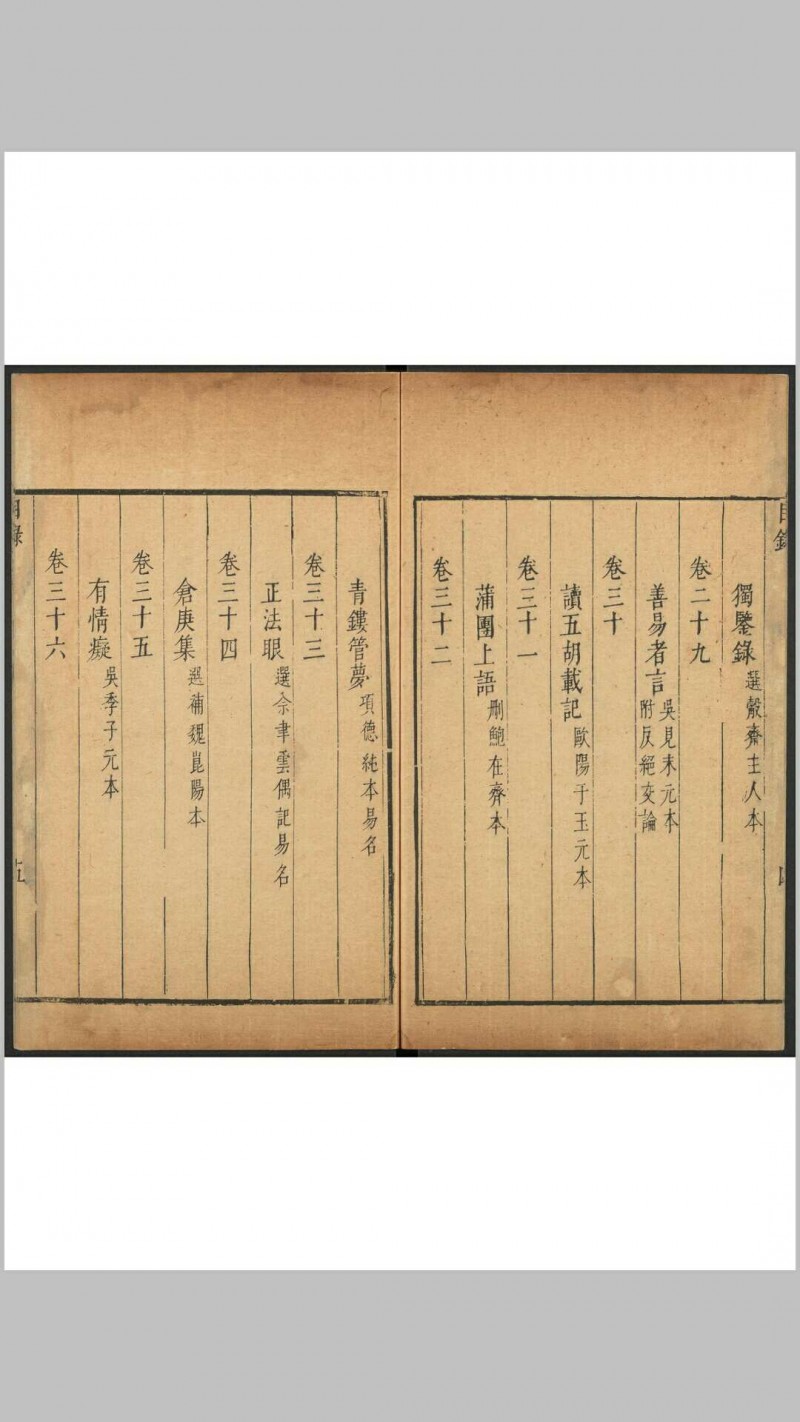 目錄
獨鑒錄 選縠齋主人本
卷二十九
善易者言 吳見末元本
附反絕交論
卷三十
讀五胡載記 歐陽于玉元本
卷三十一
蒲團上語 刪鮑在齊本
卷三十二
青鏤管夢 項德純本易名
卷三十三
正法眼 選佘聿雲偶記易名
卷三十四
倉庚集 選補魏崑陽本
卷三十五
有情癡 吳季子元本
卷三十六
目錄
五